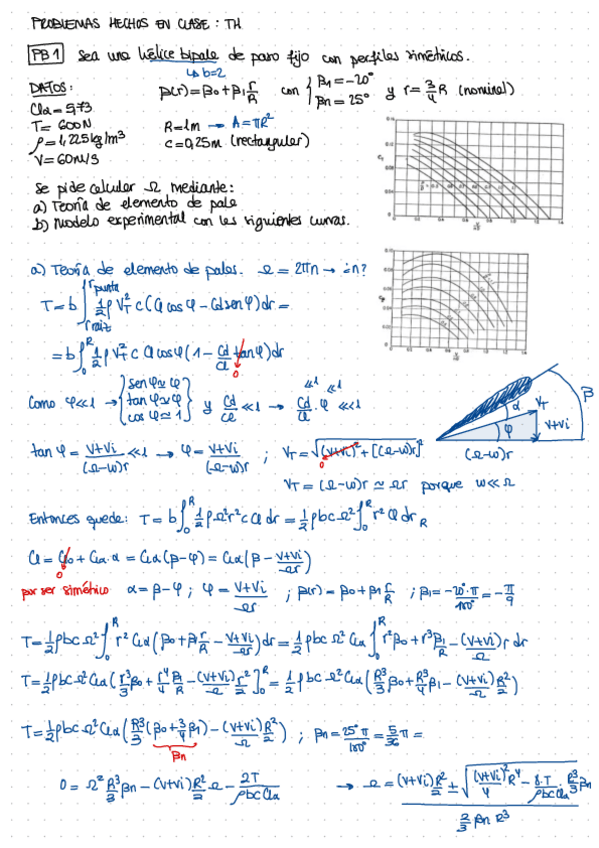 PROBLEMAS HECHOS EN CLASE : TH
PB1 Sea una hélice bipala de paso fijo con perfiles simétricos.
↳ b=2
DATOS:
Clα = 5,73
T = 600N
ρ = 1,225 kg/m³
V = 60m/s
β(r) = β0 + β1 r/R con { β1 = -20° βn = 25° y r = 3/4 R (nominal)
R = 1m → A = πR²
c = 0,25m (rectangular)
Se pide calcular Ω mediante:
a) Teoría de elemento de pala
b) Modelo experimental con las siguientes curvas.
a) Teoría de elemento de palas. Ω = 2πn → ¿n?
T = b ∫ r raíz r punta 1/2 ρ V_T² c (Cl cos φ - Cd sen φ) dr =
= b ∫₀ᴿ 1/2 ρ V_T² c Cl cos φ (1 - Cd/Cl tan φ) dr
0
Como φ ≪ 1 → { sen φ ≃ φ tan φ ≃ φ cos φ ≃ 1 } y Cd/Cl ≪ 1 → Cd/Cl · φ ≪ 1
≪1 ≪1
tan φ = V+Vi/(Ω-ω)r ≪ 1 → φ = V+Vi/(Ω-ω)r ; V_T = √((V+Vi)² + [(Ω-ω)r]²)
0
α V_T β
φ V+Vi
(Ω-ω)r
V_T = (Ω-ω)r ≃ Ωr porque ω ≪ Ω
Entonces queda: T = b ∫₀ᴿ 1/2 ρ Ω² r² c Cl dr = 1/2 ρbc Ω² ∫₀ᴿ r² Cl dr
Cl = Cl0 + Clα · α = Clα (β-φ) = Clα (β - V+Vi/Ωr)
0
por ser simétrico α = β-φ ; φ = V+Vi/Ωr ; β(r) = β0 + β1 r/R ; β1 = -20°·π/180° = -π/9
T = 1/2 ρbc Ω² ∫₀ᴿ r² Clα (β0 + β1 r/R - V+Vi/Ωr) dr = 1/2 ρbc Ω² Clα ∫₀ᴿ r² β0 + r³ β1/R - (V+Vi)/Ω r dr
T = 1/2 ρbc Ω² Clα (r³/3 β0 + r⁴/4 β1/R - (V+Vi)/Ω r²/2 ]₀ᴿ = 1/2 ρbc Ω² Clα (R³/3 β0 + R³/4 β1 - (V+Vi)/Ω R²/2)
T = 1/2 ρbc Ω² Clα (R³/3 (β0 + 3/4 β1) - (V+Vi)/Ω R²/2) ; βn = 25° π/180° = 5/36 π =
βn
0 = Ω² R³/3 βn - (V+Vi) R²/2 Ω - 2T/ρbc Clα → Ω = (V+Vi) R²/2 ± √((V+Vi)²/4 R⁴ - 8·T/ρbc Clα · R³/3 βn) / 2/3 βn R³